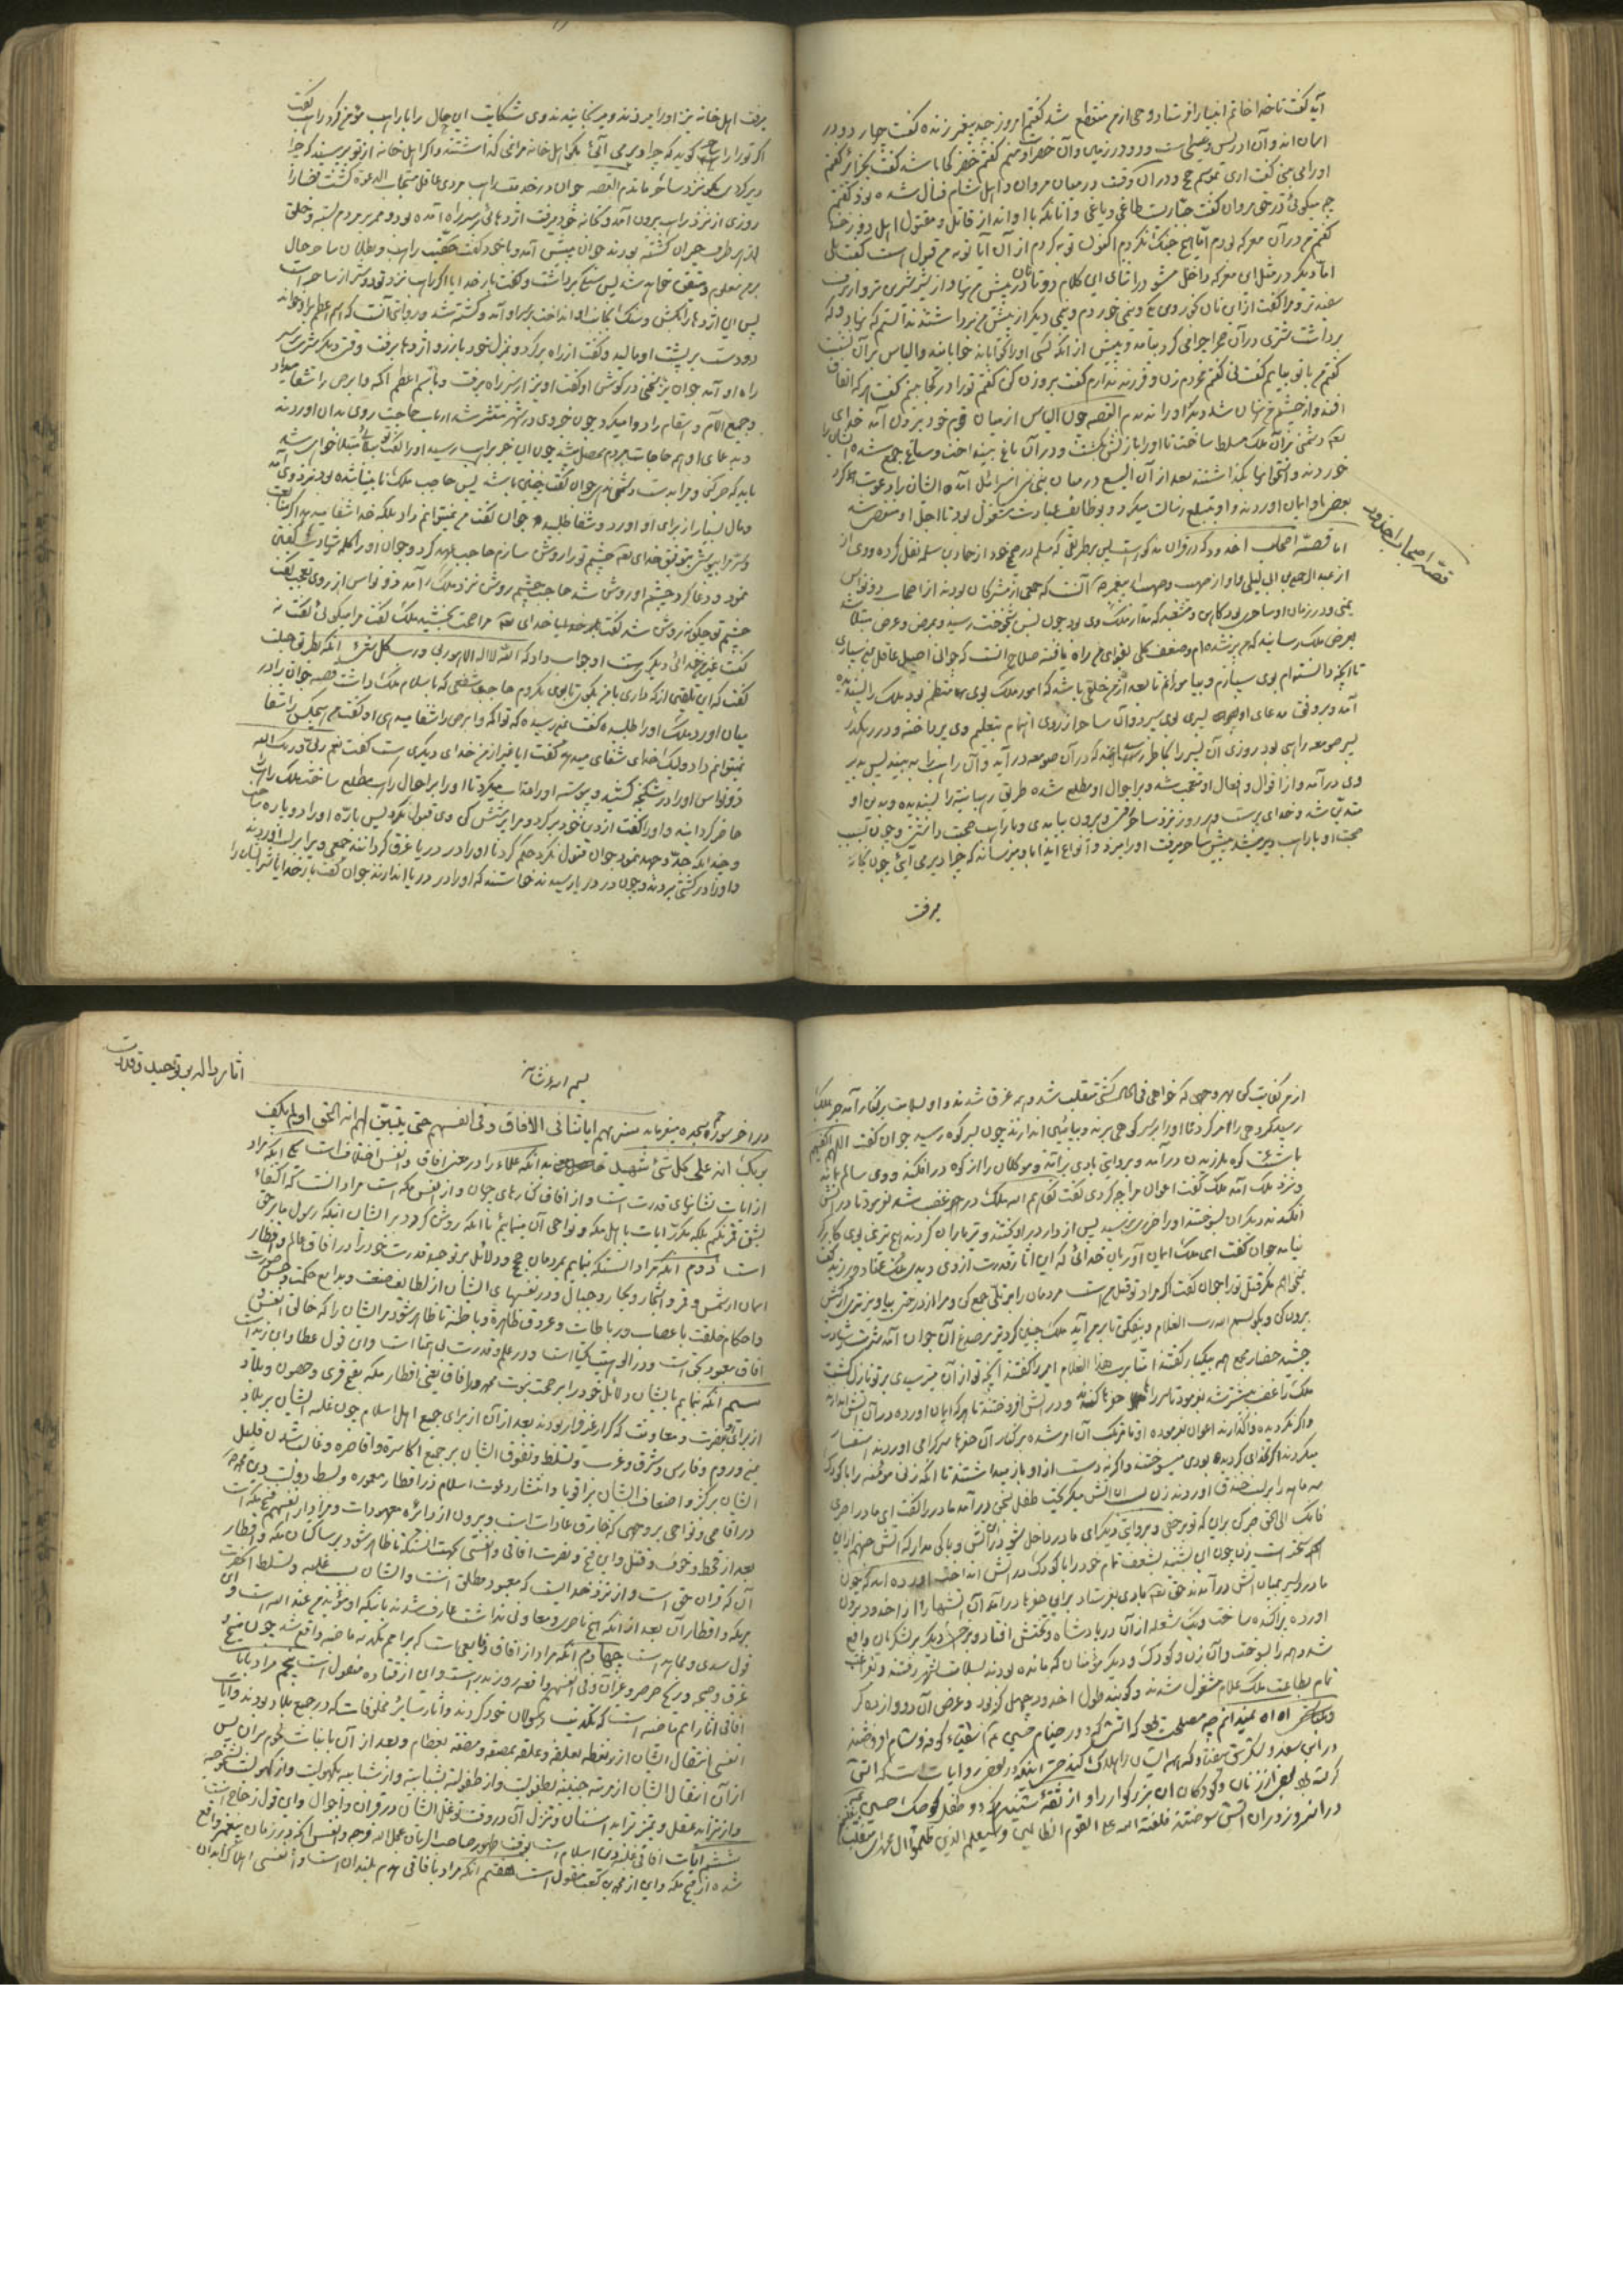 آیه گفت تا خدا خاتم انبیا را فرستاد وحی از من منقطع شد گفتم امروز چند پیغمبر زنده گفت چهار دو در
اسمان اند و آن ادریس و عیسی است و دو در زمین و آن خضر و منم گفتم خضر کجا باشد گفت بجزائر گفتم
او را می بینی گفت اری بموسم حج و در آن وقت در میان مروان و اهل شام قتال شده بود گفتم
چه میگوئی در حق مروان گفت طاغی و باغی و آنانکه با او اند از قاتل و مقتول اهل دوزخند
گفتم من در آن معرکه بودم اما هیچ جنگ نکردم اکنون توبه کردم از آن آیا توبه من قبول است گفت بلی
اما دیگر در مثل این معرکه داخل مشو در اثنای این کلام دو تا نان پیش من نهاد از
سفیدتر و مرا گفت از این نان بخور وی یکی و نیمی خورد و نیمی دیگر از پیش من برداشتند ندانستم که نهاد و که
برداشت شتری در آن صحرا چرا می کرد بیامد و پیش از آنکه کسی او را بخواباند خوابانید و الیاس بر آن نشست
گفتم من با تو بیایم گفت نی گفتم مجردم زن و فرزند ندارم گفت برو زن کن گفتم تو را در کجا بینم گفت هر که اتفاق
افتد و از چشم من نهان شد دیگر او را ندیدم القصه چون الیاس از میان قوم خود بیرون آمد خدای
تعالی دشمنی بر آن ملک مسلط ساخت تا او را با زنش بکشت و در آن باغ بینداخت و سباع جمع شده ایشان را
خوردند و استخوانها بگذاشتند بعد از آن الیسع در میان بنی اسرائیل آمده ایشان را دعوت کرد
بعضی باو ایمان آوردند و او بتبلیغ رسالت میکرد و بوظائف عبادت مشغول بود تا اجل او منقضی شد
قصه اصحاب اخدود
اما قصه اصحاب اخدود که در قران مذکور است پس بر طریقی که مسلم در صحیح خود از حماد بن سلمه نقل کرده و وی از
از عبد الرحمن ابی لیلی و او از صهیب و صهیب از پیغمبر آنست که جمعی از مشرکان بودند از اصحاب ذونواس
یمنی و در زمان او ساحری بود کاهن و مشعبد که مدار ملک وی بود چون بسن شیخوخت رسید و بمرض و عرض مبتلا شد
بعرض ملک رسانید که من پیر شده ام و ضعف کلی بقوای من راه یافته صلاح آنست که جوانی اصیل عاقل بمن سپاری
تا آنچه دانسته ام بوی سپارم و بیاموزانم تا بعد از من خلقی باشد که امور ملک بوی منتظم بود ملک را پسندیده
آمد و بر وفق مدعای او پسری بوی سپرد و آن ساحر از روی اهتمام بتعلیم وی پرداخت و در رهگذر
پسر صومعه راهبی بود روزی آن پسر را بخاطر رسید که در آن صومعه در آید و آن راهب را به بیند پس بدیر
وی در آمد و از اقوال و افعال او متعجب شد و بر احوال او مطلع شده طریق رهبانیت را پسندیده و بدین او
متدین شد و خدای پرست و هر روز نزد ساحر میرفت و بیرون بیامدی و با راهب صحبت داشتی و چون بسبب
صحبت او با راهب دیر میشد پیش ساحر میرفت او را میزد و انواع ایذا باو میرسانید که چرا دیر می آیی چون بخانه
میرفت
میرفت اهل خانه نیز او را میزدند و میرنجانیدند وی شکایت این حال را با راهب مؤمن کرد راهب گفت
اگر تو را ساحر گوید که چرا دیر می آئی بگو اهل خانه مرا می گذاشتند و اگر اهل خانه از تو پرسند که چرا
دیر کردی بگو نزد ساحر ماندم القصه جوان در خدمت راهب مردی عاقل مستجاب الدعوة گشت قضا را
روزی از نزد راهب بیرون آمد و بخانه خود میرفت اژدهائی بر سر راه آمده بود و ممر بر مردم بسته و خلق
از هر طرف حیران گشته بودند جوان پیش آمد و با خود گفت حقیقت راهب و بطلان ساحر حال
بر من معلوم و متیقن خواهد شد پس سنگی برداشت و گفت بار خدایا اگر راهب نزد تو دوستتر از ساحر است
پس این اژدها را بکش و سنگ بجانب او انداخت بر سر او آمد و کشته شد و روایتی آنست که اسم اعظم بر او خواند
و دست بر پشت او مالید و گفت از راه برگرد و بمنزل خود باز رو اژدها برفت و وقتی دیگر شیری بر سر
راه او آمد جوان نیز سخنی در گوش او گفت او نیز از سر راه برفت و باسم اعظم اکمه و ابرص را شفا میداد
و جمیع آلام و اسقام را دوا میکرد چون خبر وی در شهر منتشر شد ارباب حاجت روی بدان آوردند
و بدعای او همه حاجات مردم بحصول میشد چون این خبر براهب رسید او را گفت تو ببلائی مبتلا خواهی شد
باید که صبر کنی و مرا بدست دشمن ندهی جوان گفت چنین باشد پس حاجب ملک نابینا شده بود نزد وی آمد
و مال بسیار از برای او آورد و شفا طلبید جوان گفت من نمیتوانم داد بلکه خدا شفا میدهد اگر متابعت
و سرّ مرا بپوشی بتوفیق خدای تعالی چشم تو را روشن سازم حاجب عهد کرد و جوان او را کلمه شهادت تلقین
نمود و دعا کرد چشم او روشن شد حاجب چشم روشن نزد ملک آمد ذونواس از روی تعجب گفت
چشم تو چگونه روشن شد گفت خدای تعالی مرا صحت بخشید ملک گفت مرا میگوئی گفت نه
گفت غیر من خدائی دیگر هست او جواب داد که الله لا اله الا هو ربی و رب کل شیء
گفت که این تلقین از که داری با من بگوی تا بوی بگروم حاجب شعفی که باسلام ملک داشت قصه جوان را در
میان آورد ملک او را طلبیده گفت بمن رسیده که تو اکمه و ابرص را شفا میدهی او گفت من هیچکس را شفا
نمیتوانم داد ولیکن خدای شفا میدهد گفت آیا غیر از من خدای دیگری هست گفت نعم ربی و ربک الله
ذونواس او را در شکنجه کشید و پیوسته او را عذاب میکرد تا او را بر احوال راهب مطلع ساخت ملک راهب را
حاضر گردانید و او را گفت از دین خود برگرد و مرا پرستش کن وی قبول نکرد پس باره او را دوباره ساخت
و چندانکه جد و جهد نمود جوان قبول نکرد حکم کرد تا او را در دریا غرق گردانند جمعی ویرا برلب آوردند
و او را در کشتی بردند و چون در دریا رسیدند خواستند که او را در دریا اندازند جوان گفت بار خدایا شر ایشان را
از من کفایت کن بهر وجهی که خواهی فی الحال کشتی منقلب شد و همه غرق شدند و او بسلامت بر کنار آمد خبر بملک
رسید گروهی را امر کرد تا او را بر سر کوهی برند و بپائین اندازند چون بسر کوه رسید جوان گفت اللهم اکفنیهم
بما شئت کوه بلرزیدن در آمد و بروایتی بادی برآمد و موکلان را از کوه در افکند و وی سالم مانده
و نزد ملک آمد ملک گفت اعوان مرا چه کردی گفت کفاهم الله ملک در غضب شد فرمود تا در آتش
افکندند دیگران بسوختند و او را ضرری نرسید پس از دار در آویختند و تیرباران کردند هیچ تیری بوی کارگر
نیامد جوان گفت ای ملک ایمان آور بآن خدائی که این آثار قدرت از وی دیدی ملک عناد ورزید گفت
نمیخواهم مگر قتل تو را جوان گفت اگر مراد تو قتل من است مردمان را بر تلی جمع کن و مرا از درختی بیاویز و تیری از ترکش
بیرون کن و بگو بسم الله رب الغلام و بیفکن تا بر من آید ملک چنین کرد تیر بر صدغ آن جوان آمد شربت شهادت
چشید حضار مجمع همه بیکبار گفتند آمنا برب هذا الغلام امیر را گفتند آنچه تو از آن میترسیدی بر تو نازل گشت
ملک را غضب بیشتر شد بفرمود تا حفرها کندند و در آتش افروختند تا هر که ایمان آورده در آن آتش اندازند
و اگر نگردیده واگذارند اعوان بفرموده او تا مرتکب آن امر شده بر کنار آن حفرها هر که را می آوردند استفسار
میکردند اگر بخدای گرویده بودی میسوختند و اگر نه دست از او باز میداشتند تا آنکه زنی مؤمنه را با کودکی
سه ماهه را بر لب خندق آوردند زن از آتش میگریخت طفل بسخن در آمد مادر را گفت ای مادر اصبری
فانک الی الحق صبر کن بران که تو بر حقی و بروایتی دیگر ای مادر داخل شو در آتش و باکی مدار که آتش جهنم از این
سخت است زن چون این بشنید بشعف تمام خود را با کودک در آتش انداخت آورده اند که چون
مادر و پسر بمیان آتش در آمدند حق تعالی بادی بفرستاد بر آن حفرها در آمد آن آتشها را از اخدود بیرون
آورده پراکنده ساخت و یک شعله از آن در پادشاه و تختش افتاد و برخی دیگر بر لشکریان واقع
شد و همه را بسوخت و آن زن و کودک و دیگر مؤمنان که مانده بودند بسلامت بشهر رفتند و بفراغت
تمام بطاعت ملک علام مشغول شدند و گویند طول اخدود چهل گز بود و عرض آن دوازده گز
آه آه نمیدانم چه مصلحت بود که آتشی که در خیام حسین اشقیاء کوفه و شام افروختند
در ابن سعد و لشکرش نیفتاد که همه ایشان را هلاک کند حتی اینکه در بعض روایات است که آتش
گرفته بود بعضی از زنان و کودکان آن بزرگوار را و از ثقه شنیدم که دو طفل کوچک حسین
در انروز در آن آتش سوختند فلعنة الله علی القوم الظالمین و سیعلم الذین ظلموا آل محمد ای منقلب
آثار داله بر توحید و قدرت
بسم الله شانه
در آخر سوره سجده میفرماید سنریهم آیاتنا فی الآفاق و فی انفسهم حتی یتبین لهم انه الحق اولم یکف
بربک انه علی کل شئ شهید بدانکه علماء را در معنی آفاق و انفس اختلاف است یکی آنکه مراد
از آیات نشانهای قدرت است و از آفاق کنارهای جهان و از انفس مکه است مراد آنست که اکتفاء
بشق قمر نکنم بلکه مکرر آیات باهل مکه و نواحی آن بنمایم تا آنکه روشن گردد بر ایشان اینکه رسول ما بر حق
است دوم آنکه مراد آنستکه بنمایم بمردمان حجج و دلائل بر توحید و قدرت خود را در آفاق عالم و اقطار
آسمان از شمس و قمر و اشجار و بحار و جبال و در نفسهای ایشان از لطایف صنعت و بدایع حکمت و حسن صورت
و احکام خلقت باعصاب و رباطات و عروق ظاهرة و باطنة تا ظاهر شود مر ایشان را که خالق انفس و
آفاق معبود یکتاست و در الوهیت یکتا است و در علم و قدرت بی همتا است و این قول عطا و ابن زید است
سیم آنکه بنمایم بایشان دلائل خود را بر صحت نبوت محمد و در آفاق یعنی اقطار مکه بفتح قری و حصون و بلاد
از برای و نصرت و معاونت که کرار غیر فرار بودند بعد از آن از برای جمیع اهل اسلام چون غلبه ایشان بر بلاد
یمن و روم و فارس و شرق و غرب و تسلط و تفوق ایشان بر جمیع اکاسره و قیاصره و غالب شدن قلیل
ایشان بر کثیر و اضعاف ایشان بر اقویا و انتشار دعوت اسلام در اقطار معموره و بسط دولت دین محمدی
در اقاصی و نواحی بر وجهی که خارق عادات است و بیرون از دائره معهودات و مراد از انفسهم فتح مکه است
بعد از قحط و خوف و قتل و این فتح و نصرت آفاقی و انفسی بجهت آنستکه تا ظاهر شود بر ساکنان مکه و اقطار
آن که قران حق است و از نزد خداست که معبود مطلق است و ایشان بسبب غلبه و تسلط آنحضرت
بر مکه و اقطار آن بعد از آنکه هیچ ناصر و معاونی نداشت عارف شدند باینکه او مؤید من عند الله است و این
قول سدی و مجاهد است چهارم آنکه مراد از آفاق وقایعی است که بر امم مکذبه ماضیه واقع شد چون مسخ و
غرق و صیحه و ریح صرصر و غیر آن و فی انفسهم واقعه روز بدر است و این از قتاده منقول است پنجم مراد بآیات
آفاقی آثار امم ماضیه است که تکذیب رسولان خود کردند و آثار سایر مخلوقات که در جمیع بلاد بودند و آیات
انفسی انتقال ایشان از نطفه بعلقه و علقه بمضغه و مضغه بعظام و بعد از آن بانبات لحوم بر آن پس
از آن انتقال ایشان از مرتبه جنینیه بطفولیت و از طفولیت بشابیت و از شابیه بکهولت و از کهولت بشیخوخیه
و از مرتبه عقل و تمیز تزاید اسنان و تنزل آن در وقت توغل ایشان در قران و احوال و این قول زجاج است
ششم آیات آفاقی غلبه دین اسلام است بوقت ظهور صاحب الزمان عجل الله فرجه و انفس آنکه در زمان پیغمبر واقع
شد از فتح مکه و این از محمد بن کعب منقول است هفتم آنکه مراد بآفاقی هدم بلدان است و انفسی اهلاک ابدان